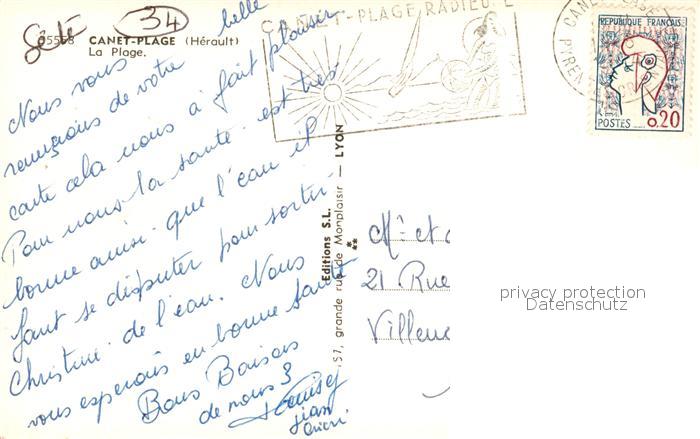 Sète
34
05568 CANET-PLAGE (Hérault)
La Plage.
CANET-PLAGE RADIEUSE
CANET
PYREN
REPUBLIQUE FRANÇAISE
POSTES 0.20
belle
Nous vous
remercions de votre
carte cela nous a fait plaisir.
Pour nous la santé est très
bonne aussi. que l'eau il
faut se disputer pour sortir
Christine de l'eau. Nous
vous esperons en bonne santé
Bons Baisers
de nous 3
Editions S.L.
57, grande rue de Monplaisir — LYON
Mr et
21 Rue
Villeneu
privacy protection
Datenschutz